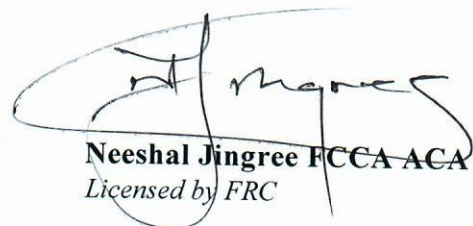 Neeshal Jingree FCCA ACA
Licensed by FRC